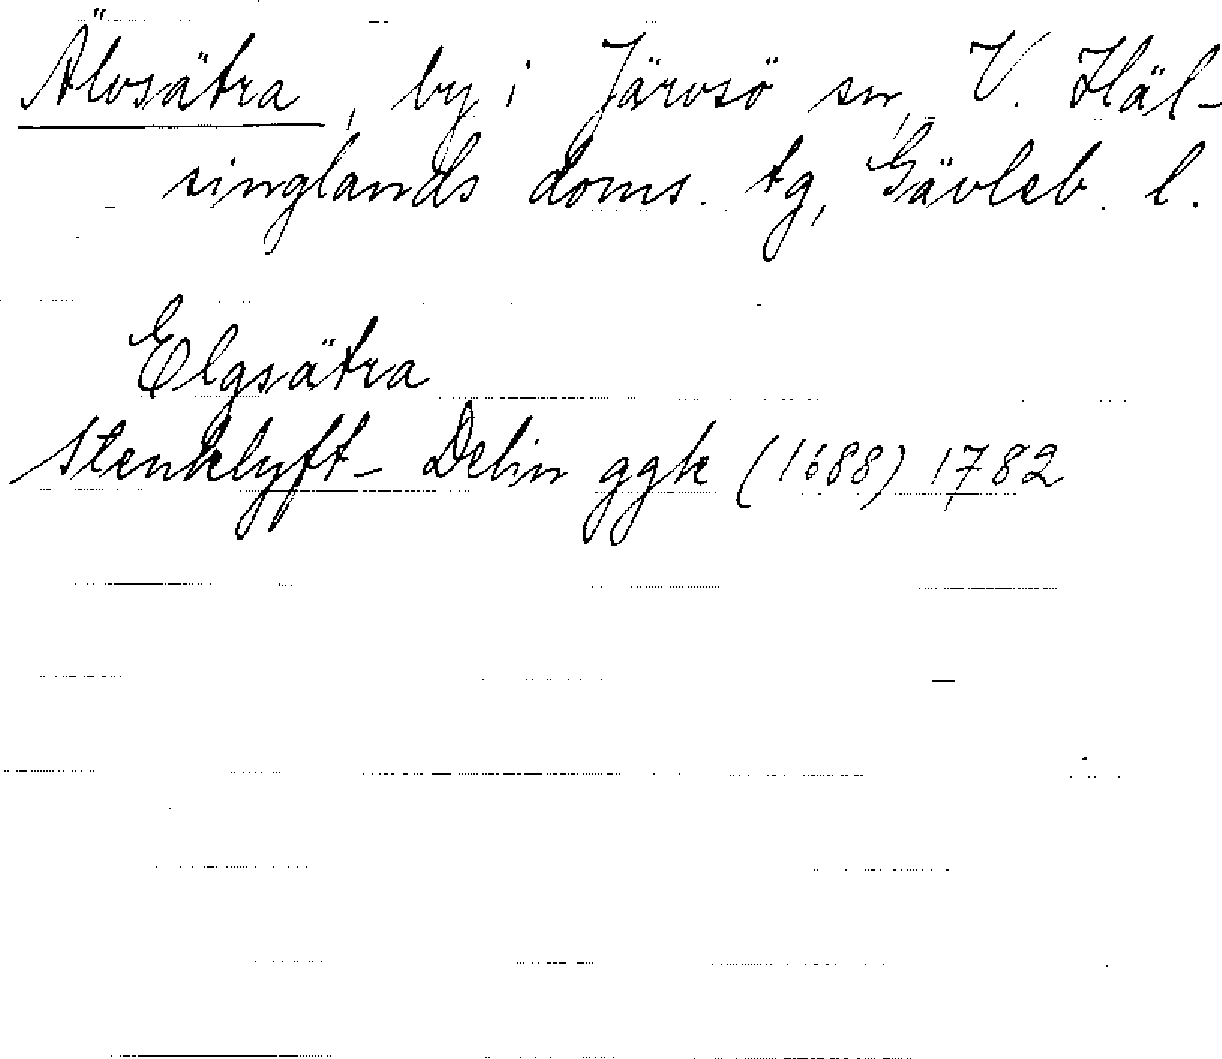 Älvsätra, by i Järvsö sn, V. Häl-
singlands doms. tg, Gävleb. l.
Elgsätra
Stenklyft- Delin ggk (1688) 1782